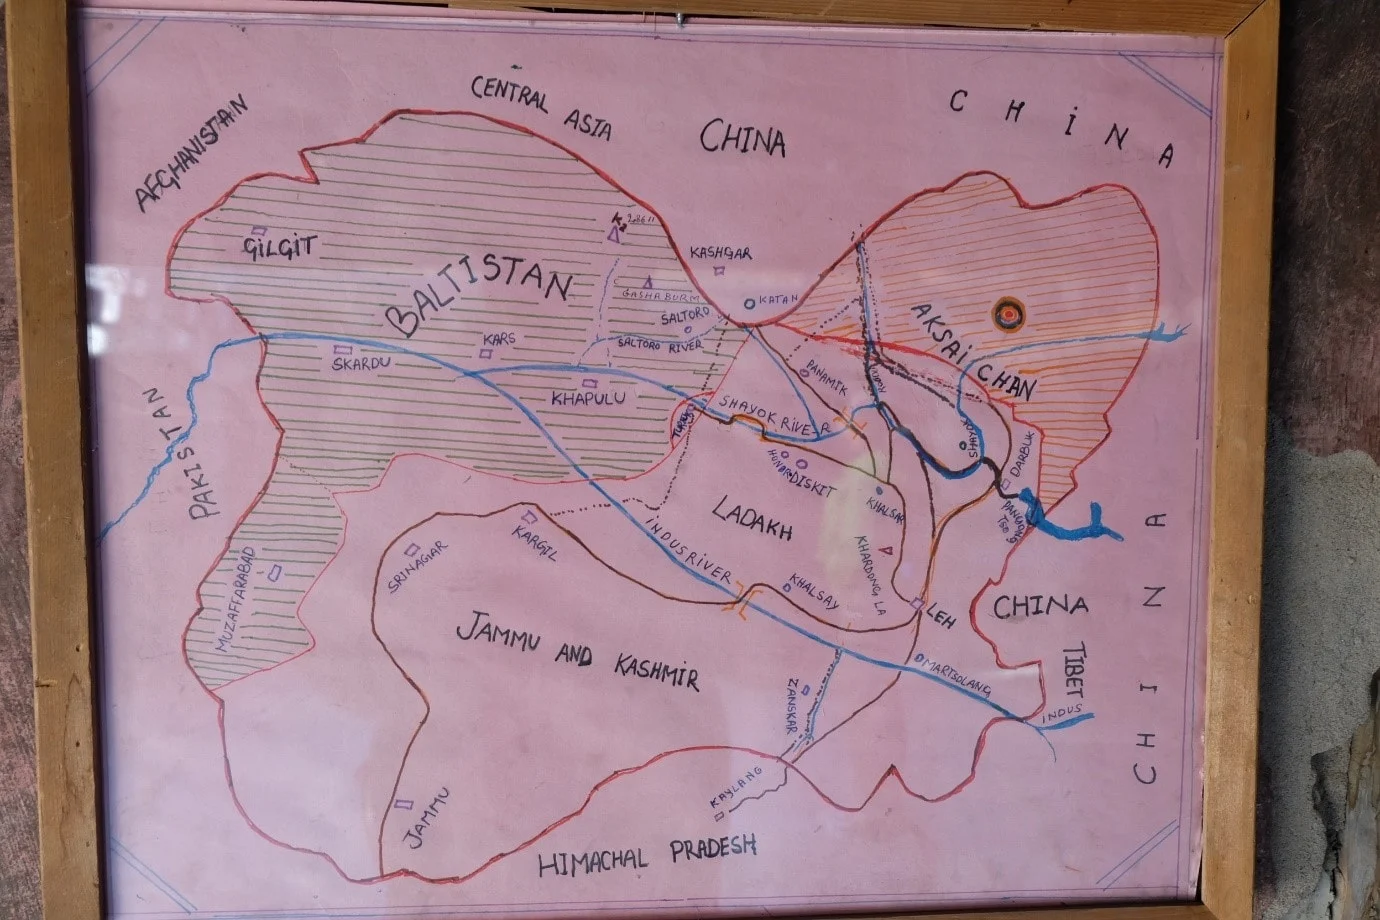 CENTRAL ASIA
CHINA
CHiNA
AFGHANISTAN
K2
GiLGiT
BALTISTAN
KASHGAR
GASHABURM
KATAH
SALTORO
SALTORO RIVER
AKSAi CHAN
SKARDU
KARS
KHAPULU
PANAMIK
TURTUK
SHAYOK RIVER
SHYOK
DARBUK
PAKISTAN
HUNDAR
DISKIT
KHALSAR
PANGONG
TSO
LADAKH
iNDUS RIVER
KARGIL
SRiNAGAR
KHARDONG LA
MUZAFFARABAD
KHALSAY
LEH
CHINA
TIBET
CHINA
JAMMU AND KASHMiR
MARTSOLANG
iNDUS
ZANSKAR
KAYLANG
JAMMU
HIMACHAL PRADESH